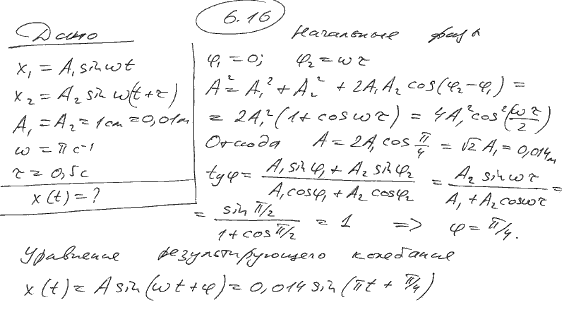 6.16
Дано
x₁ = A₁ sin ωt
x₂ = A₂ sin ω(t + τ)
A₁ = A₂ = 1см = 0,01м
ω = π с⁻¹
τ = 0,5с
x(t) = ?
Начальные фазы
φ₁ = 0; φ₂ = ωτ
A² = A₁² + A₂² + 2A₁A₂ cos(φ₂ - φ₁) =
= 2A₁²(1 + cos ωτ) = 4A₁² cos²(ωτ/2)
Отсюда A = 2A₁ cos π/4 = √2 A₁ = 0,014м
tgφ = (A₁ sin φ₁ + A₂ sin φ₂)/(A₁ cos φ₁ + A₂ cos φ₂) = (A₂ sin ωτ)/(A₁ + A₂ cos ωτ) =
= (sin π/2)/(1 + cos π/2) = 1 => φ = π/4.
Уравнение результирующего колебания
x(t) = A sin(ωt + φ) = 0,014 sin(πt + π/4)